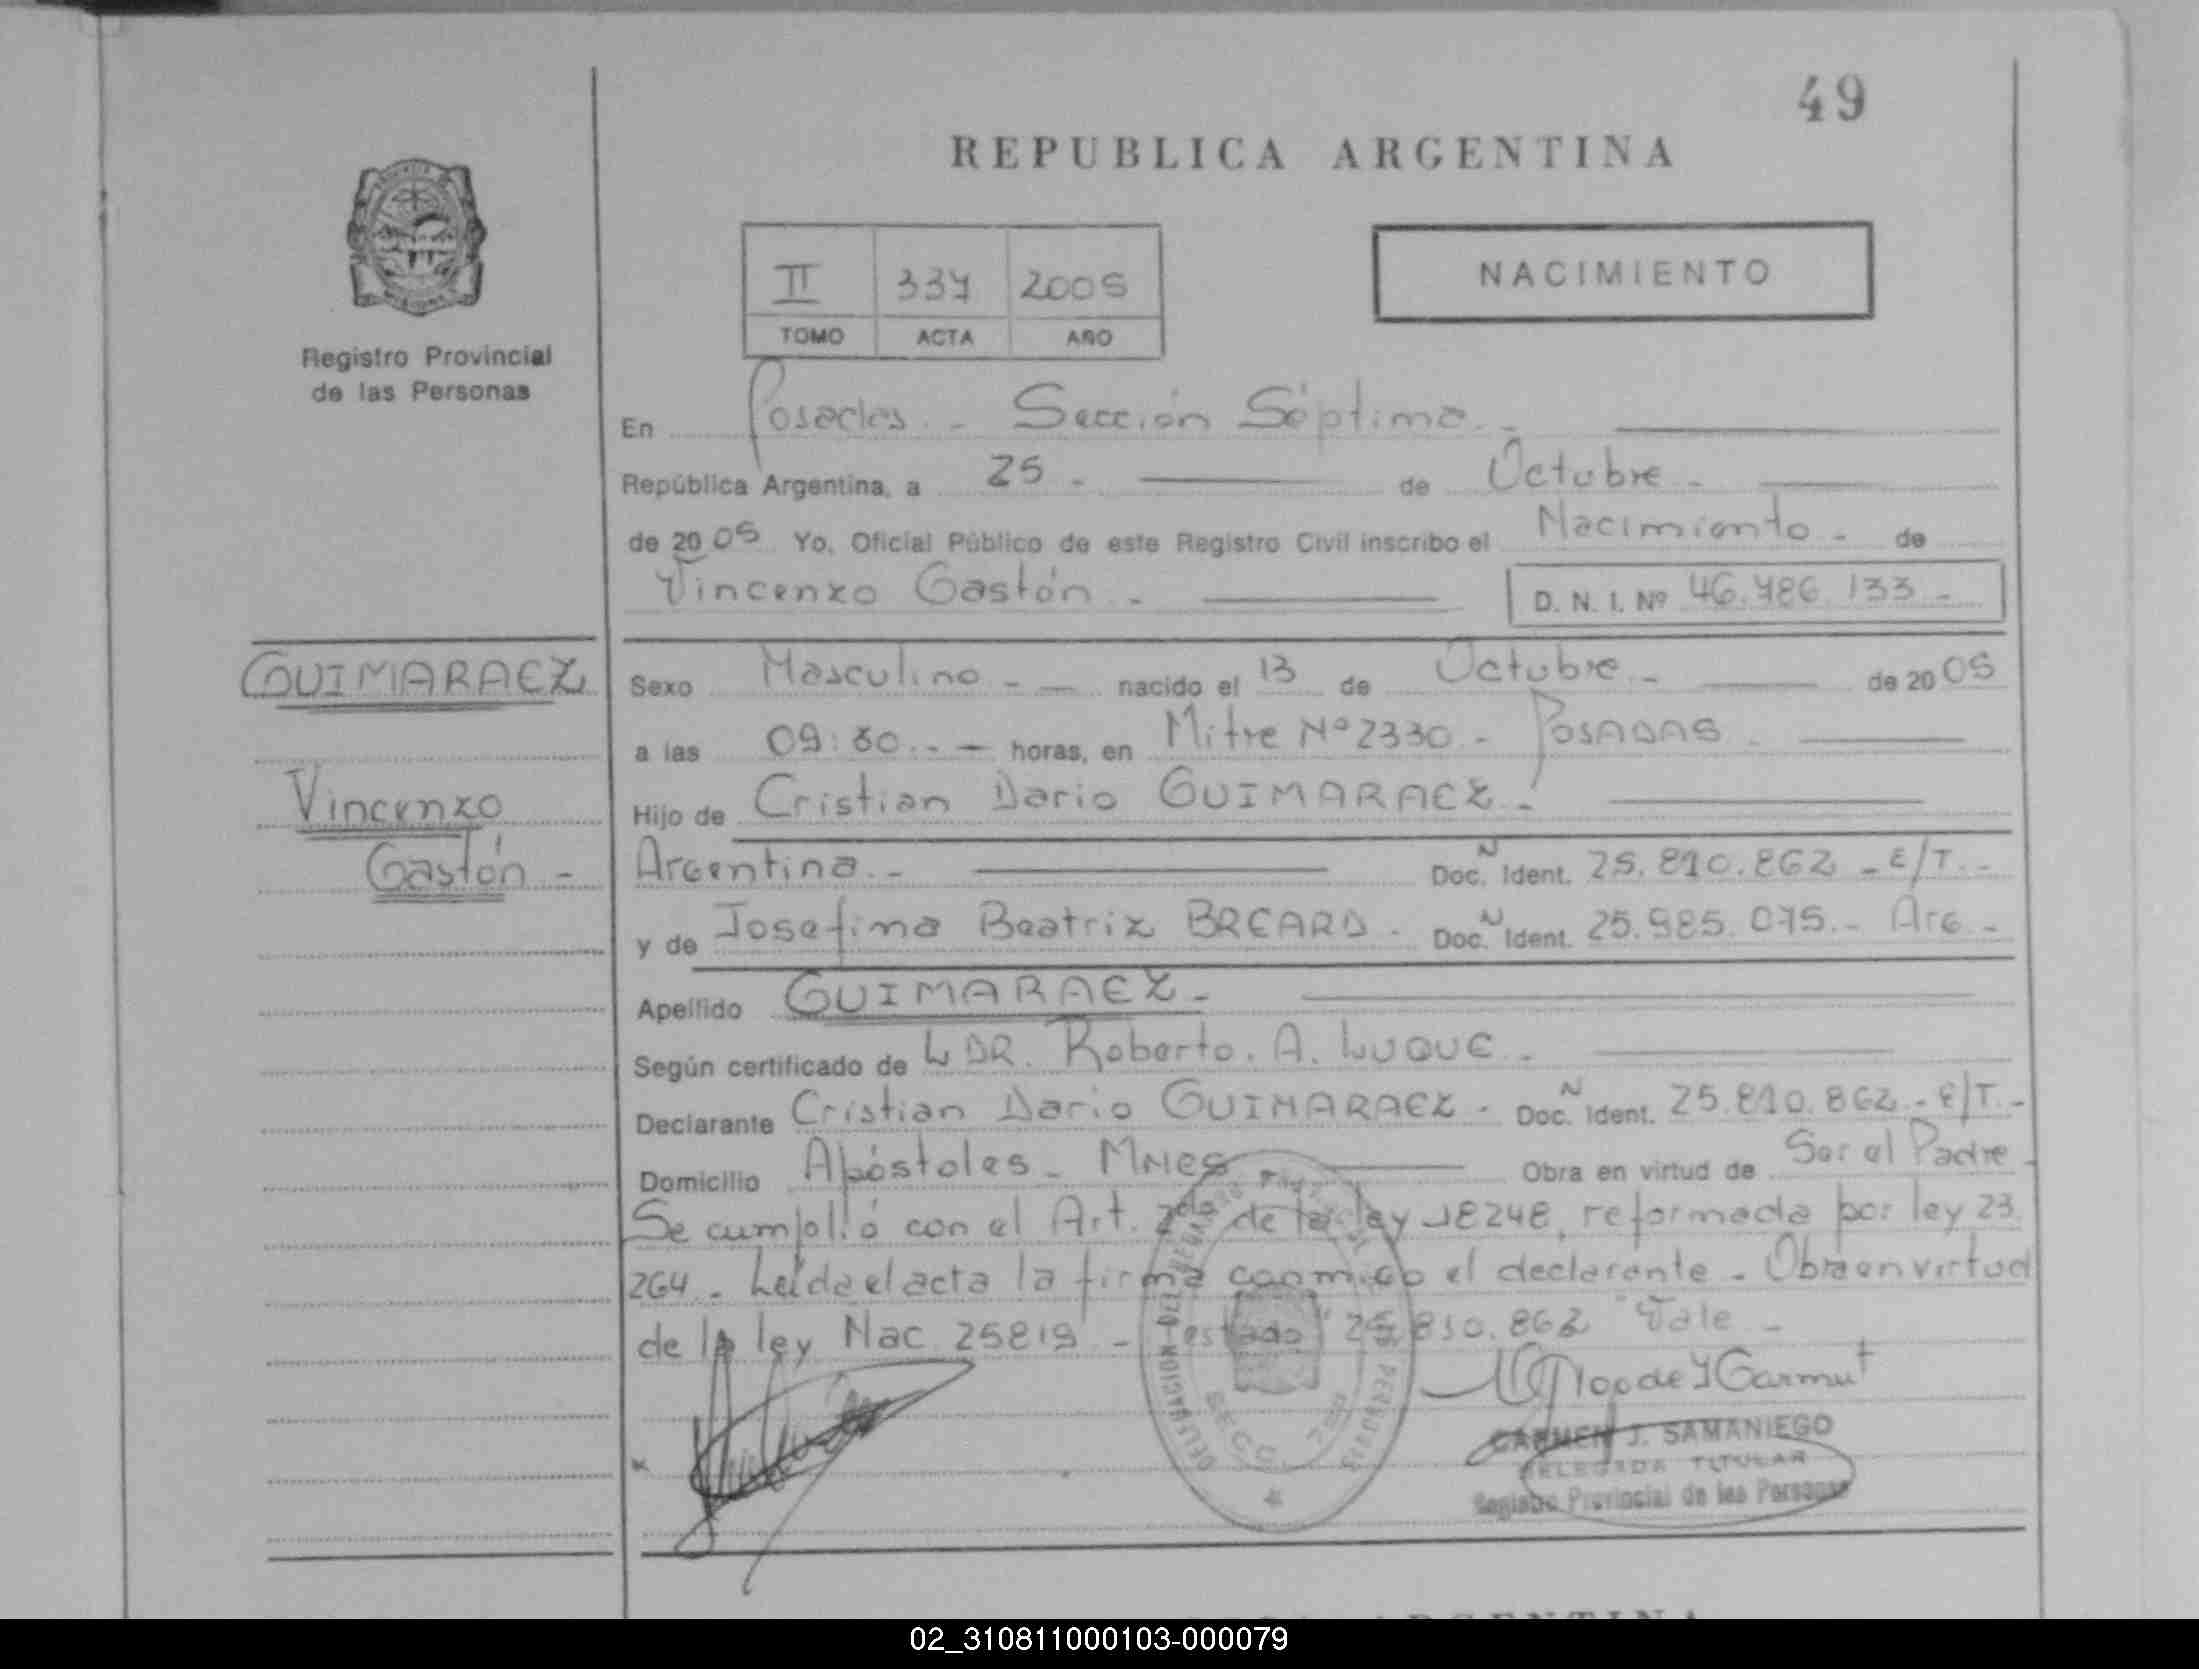 49
REPUBLICA ARGENTINA
NACIMIENTO
II 337 2005
TOMO ACTA AÑO
Registro Provincial
de las Personas
En Posadas. - Sección Séptima. -
República Argentina, a 25 - de Octubre -
de 2005 Yo, Oficial Público de este Registro Civil inscribo el Nacimiento - de
Vincenzo Gastón - D. N. I. Nº 46.786.133 -
GUIMARAEZ
Vincenzo
Gastón -
Sexo Masculino - - nacido el 13 de Octubre - de 2005
a las 09:30. - - horas, en Mitre Nº 2330 - POSADAS -
Hijo de Cristian Dario GUIMARAEZ -
Argentina. - Doc. N Ident. 25.810.862 - E/T. -
y de Josefina Beatriz BREARD - Doc. N Ident. 25.985.075. - Arg -
Apellido GUIMARAEZ -
Según certificado de DR. Roberto. A. LUQUE -
Declarante Cristian Dario GUIMARAEZ - Doc. N Ident. 25.810.862 - E/T. -
Domicilio Apóstoles - Mnes Obra en virtud de Ser el Padre -
Se cumplió con el Art. 2do de la ley 18248, reformada por ley 23.
264 - Leída el acta la firma conmigo el declarante - Obra en virtud
de la ley Nac 25819 - estado 25.830.862 Vale -
DELEGACION DEL REGISTRO PROVINCIAL DE LAS PERSONAS
SECC. 7ma
CARMEN J. SAMANIEGO
DELEGADA TITULAR
Registro Provincial de las Personas
02_310811000103-000079